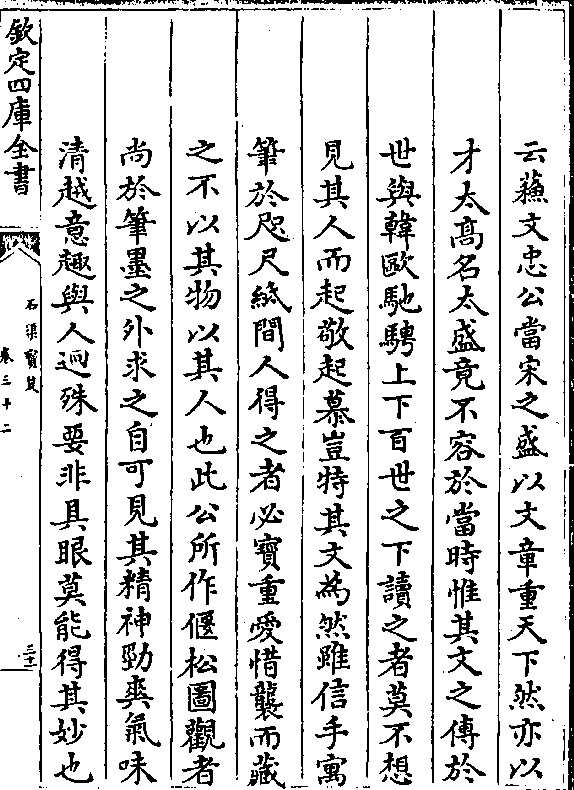 云蘓文忠公當宋之盛以文章重天下然亦以
才太髙名太盛竟不容於當時惟其文之傳於
世與韓歐馳騁上下百世之下讀之者莫不想
見其人而起敬起慕豈特其文為然雖信手寓
筆於咫尺紙間人得之者必寶重愛惜襲而藏
之不以其物以其人也此公所作偃松圖觀者
尚於筆墨之外求之自可見其精神勁爽氣味
清越意趣與人迥殊要非具眼莫能得其妙也
欽定四庫全書
石渠寳笈
卷三十二